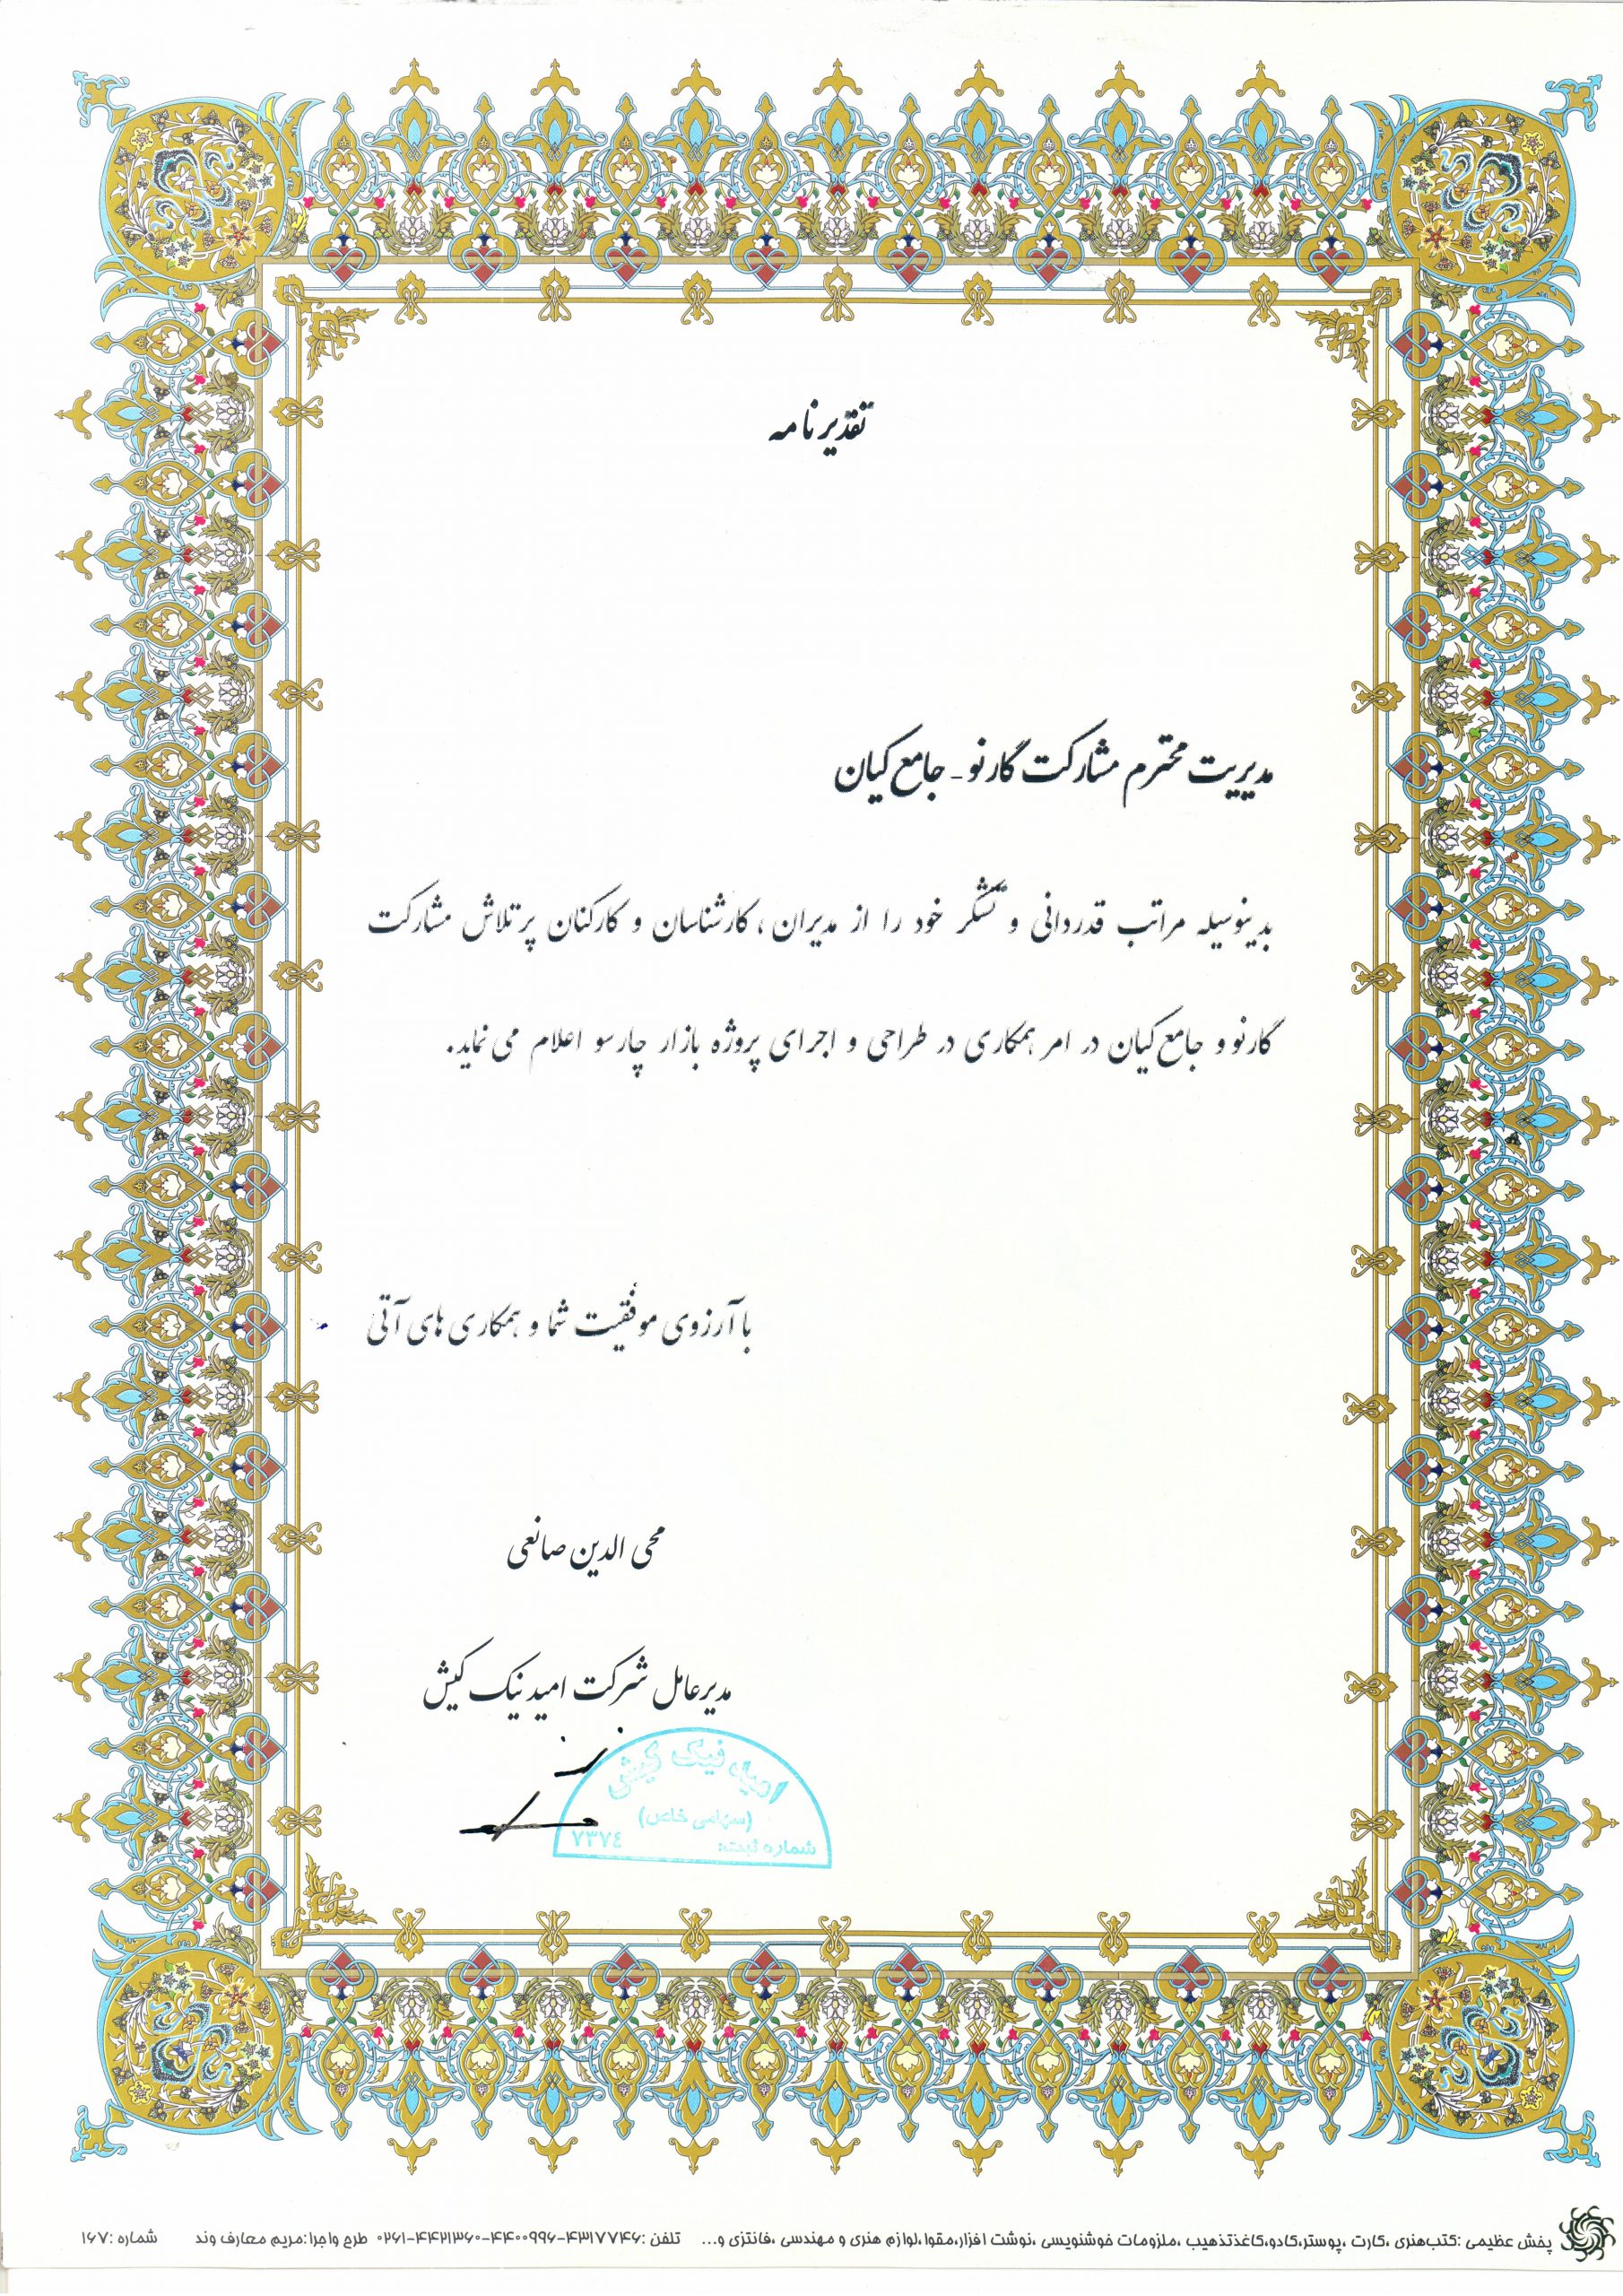 تقدیرنامه
مدیریت محترم مشارکت گارنو - جامع کیان
بدینوسیله مراتب قدردانی و تشکر خود را از مدیران، کارشناسان و کارکنان پرتلاش مشارکت
گارنو و جامع کیان در امر همکاری در طراحی و اجرای پروژه بازار چارسو اعلام می نماید.
با آرزوی موفقیت شما و همکاری های آتی
محی الدین صانعی
مدیرعامل شرکت امید نیک کیش
امید نیک کیش
(سهامی خاص)
شماره ثبت: ۷۳۷٤
پخش عظیمی :کتب‌هنری ،کارت ،پوستر،کادو،کاغذتذهیب ،ملزومات خوشنویسی ،نوشت افزار،مقوا،لوازم هنری و مهندسی ،فانتزی و... تلفن :۴۳۱۷۷۴۶-۴۴۰۰۹۹۶-۴۴۲۱۳۶۰-۰۲۶۱ طرح واجرا:مریم معارف وند شماره :۱۶۷